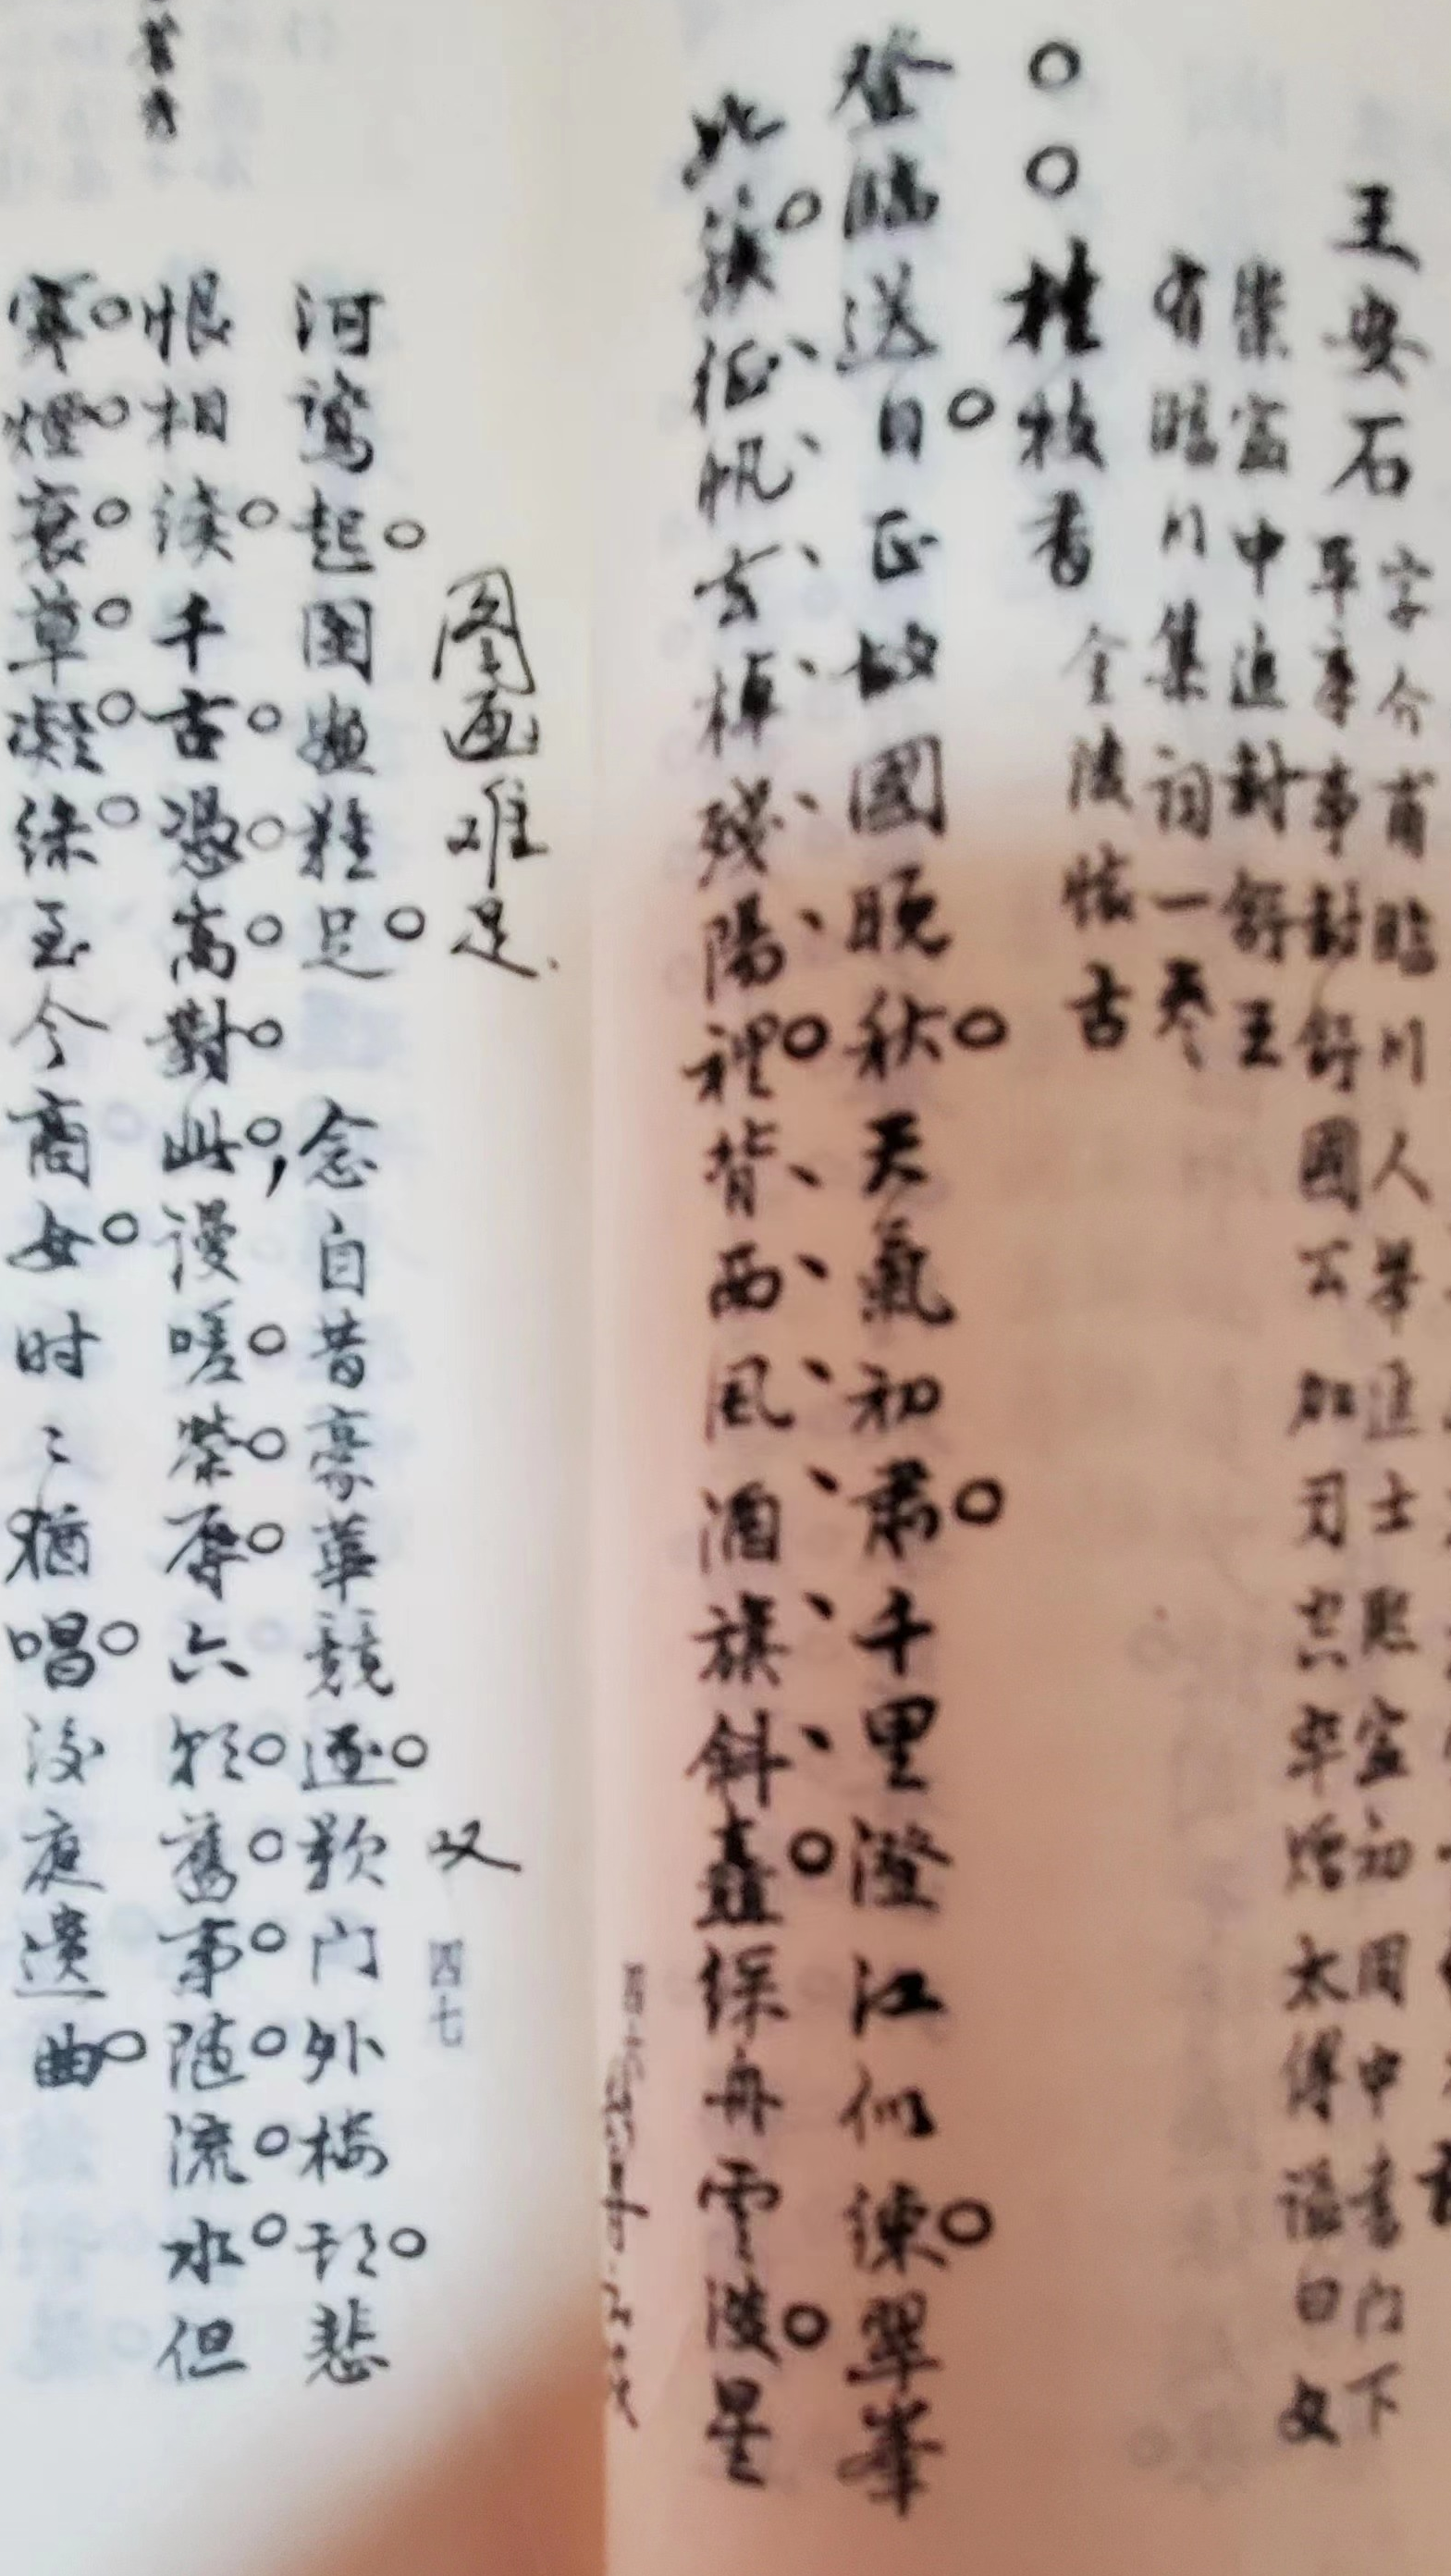 王安石 字介甫臨川人举進士熙寧初同中書門下
平章事封舒國公加司空卒增太傅謚曰文
崇寧中追封舒王
有臨川集詞一卷
桂枝香 金陵懷古
登臨送目正故國晚秋天氣初肅千里澄江似練翠峯
如簇征帆去棹殘陽裡背西風酒旗斜矗綵舟雲淡星
图画难足
河鷺起圖畫難足 念自昔豪華競逐歎门外楼頭悲
叹
四七
恨相續千古憑高對此,謾嗟榮辱六朝舊事随流水但
寒煙衰草凝綠至今商女时〻猶唱後庭遺曲